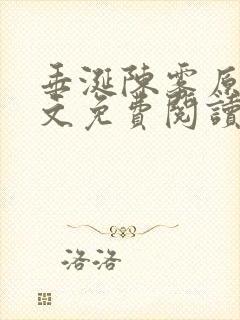 垂涎陳雾原
文免費閱讀
洛洛